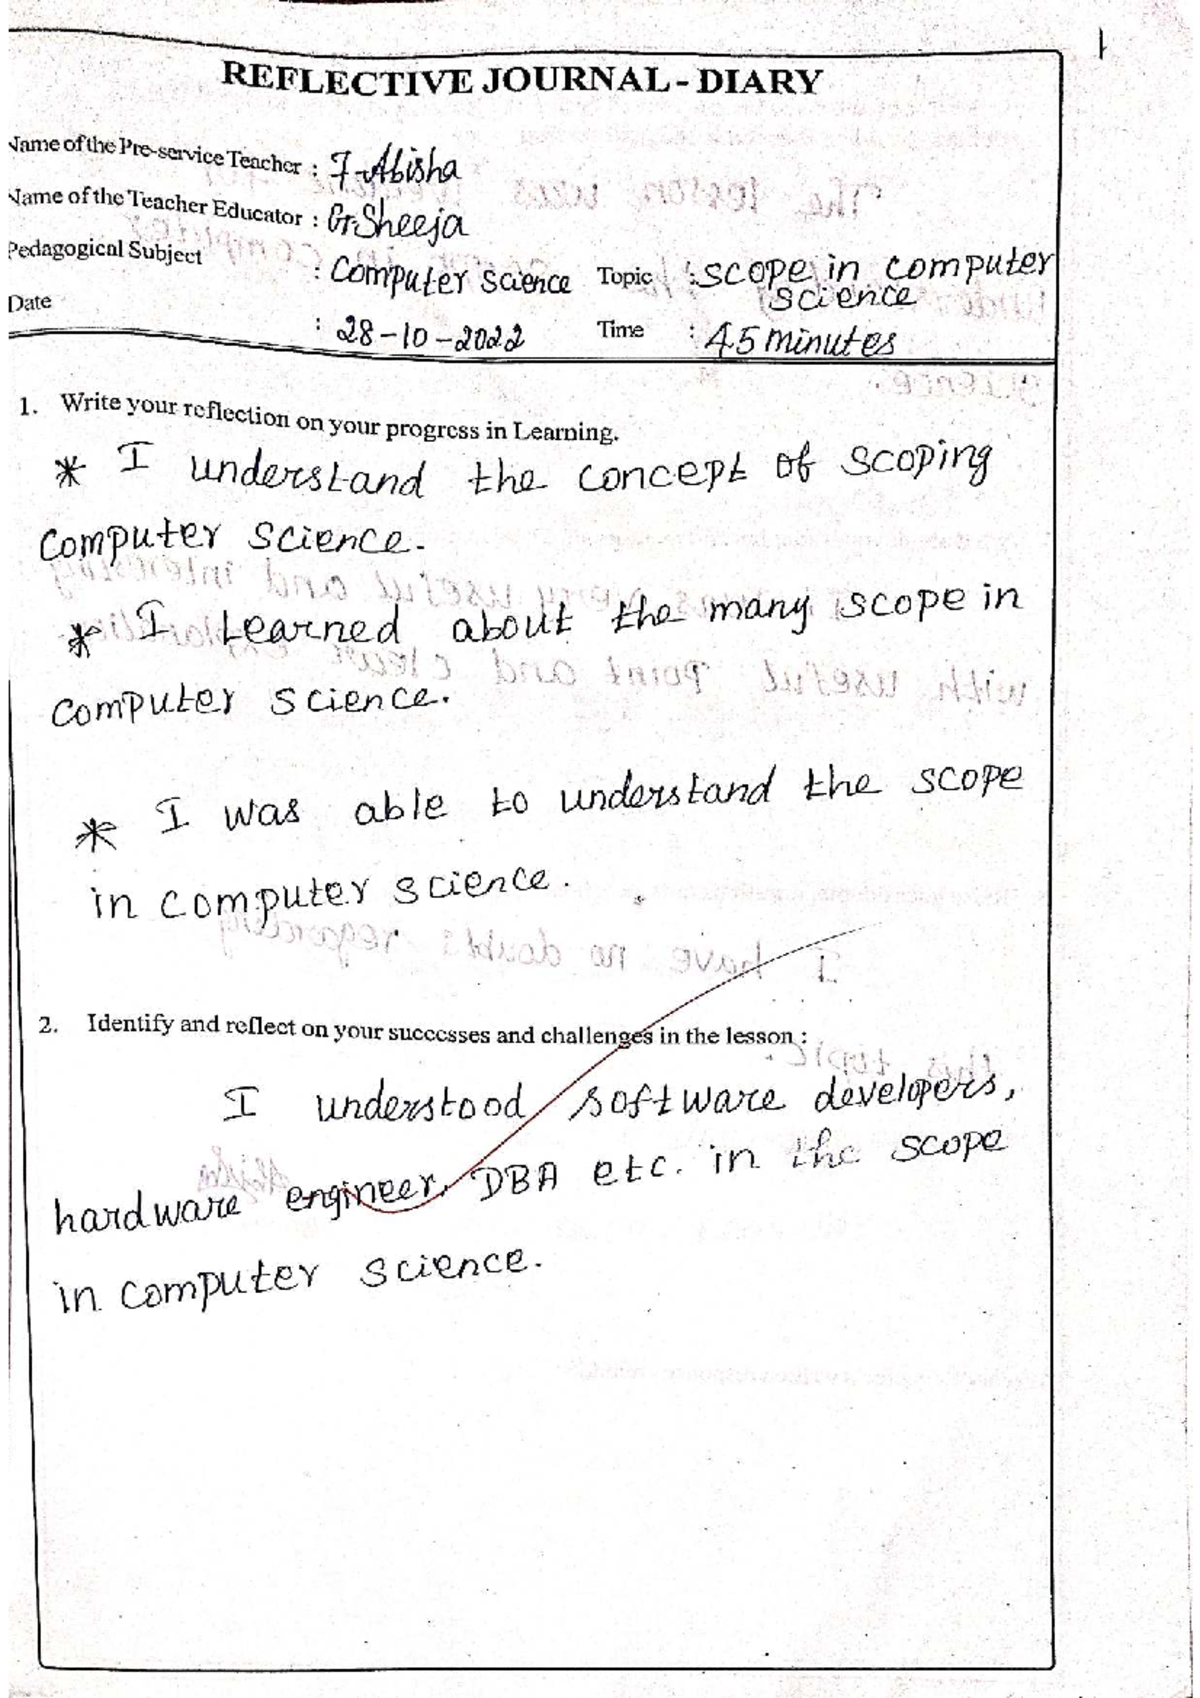 1
REFLECTIVE JOURNAL - DIARY
Name of the Pre-service Teacher : F. Abisha
Name of the Teacher Educator : Gr. Sheeja
Pedagogical Subject : Computer Science Topic : scope in computer
science
Date : 28-10-2022 Time : 45 minutes
1. Write your reflection on your progress in Learning.
* I understand the concept of scoping
computer science.
* I Learned about the many scope in
computer science.
* I was able to understand the scope
in computer science.
2. Identify and reflect on your successes and challenges in the lesson :
I understood software developers,
hardware engineer, DBA etc. in the scope
in computer science.